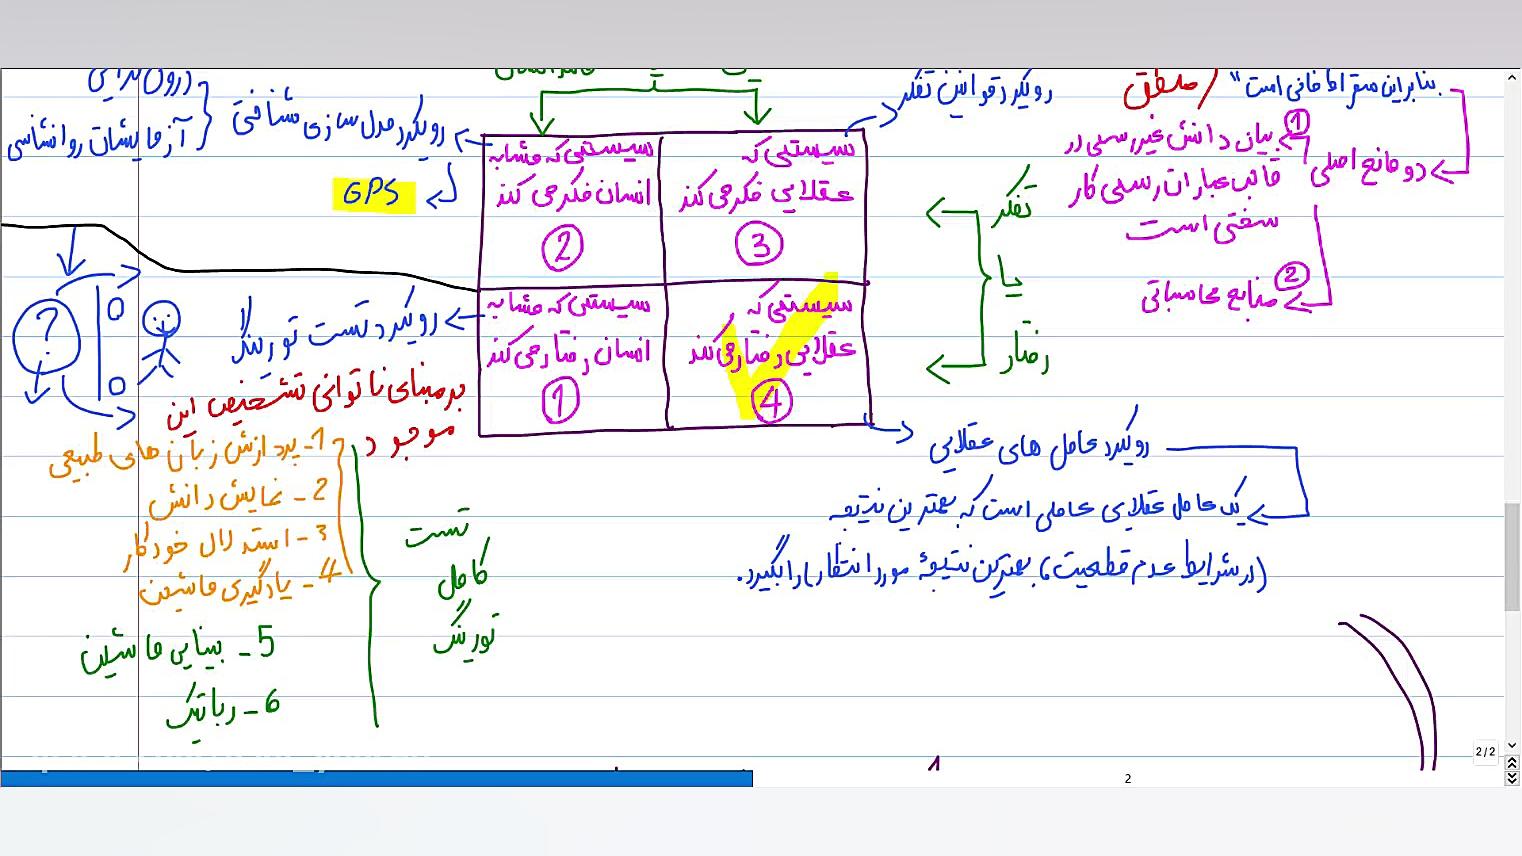 درون‌گرایی
آزمایشات روانشناسی
رویکرد مدل سازی شناختی
GPS
رویکرد قوانین تفکر
منطق
بنابراین سقراط فانی است"
دو مانع اصلی
① بیان دانش غیر رسمی در
قالب عبارات رسمی کار
سختی است
② منابع محاسباتی
سیستمی که مشابه
انسان فکر می کند
②
سیستمی که
عقلایی فکر می کند
③
سیستمی که مشابه
انسان رفتار می کند
①
سیستمی که
عقلایی رفتار می کند
④
تفکر
یا
رفتار
رویکرد تست تورینگ
بر مبنای ناتوانی تشخیص این
موجود
?
0
0
1- پردازش زبان های طبیعی
2- نمایش دانش
3- استدلال خودکار
4- یادگیری ماشین
5- بینایی ماشین
6- رباتیک
تست
کامل
تورینگ
رویکرد عامل های عقلایی
یک عامل عقلایی عاملی است که بهترین نتیجه
(در شرایط عدم قطعیت، بهترین نتیجهٔ مورد انتظار) را بگیرد.
2/2
2